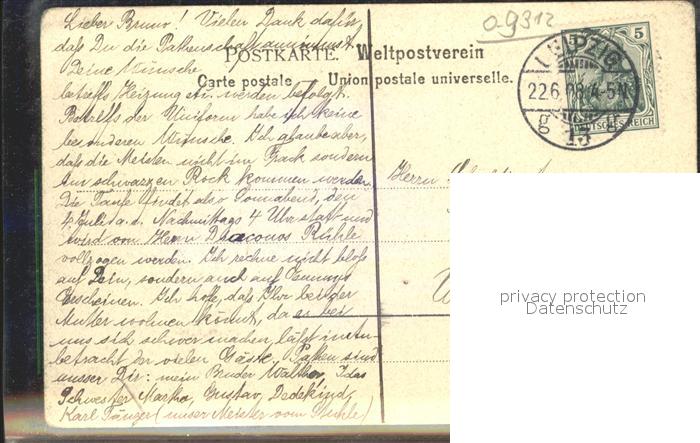 Lieber Bruno! Vielen Dank dafür,
daß Du die Pathenschaft annimmst.
POSTKARTE. Weltpostverein
Carte postale Union postale universelle.
Deine Wünsche
betreffs Heizung etc. werden befolgt.
Betreffs der Uniform habe ich keine
besonderen Wünsche. Ich glaube aber,
daß die Meisten nicht im Frack sondern
im schwarzen Rock kommen werden.
Die Taufe findet also Sonnabend, den
4. Juli a. d. Nachmittags 4 Uhr statt und
wird von Herrn Diaconus Rühle
vollzogen werden. Ich rechne nicht bloß
auf Dein, sondern auch auf
Erscheinen. Ich hoffe, daß Ihr bei der
Mutter wohnen könnt, da es bei
uns sich schwer machen läßt in An-
betracht der vielen Gäste. Pathen sind
ausser Dir: mein Bruder Walther, Idas
Schwester Martha, Gustav, Dedekind,
Karl Tänzer (unser Meister vom Stuhle)
09312
5
LEIPZIG
22.6.08.4-5N
13
DEUTSCHES REICH
Herrn
privacy protection
Datenschutz